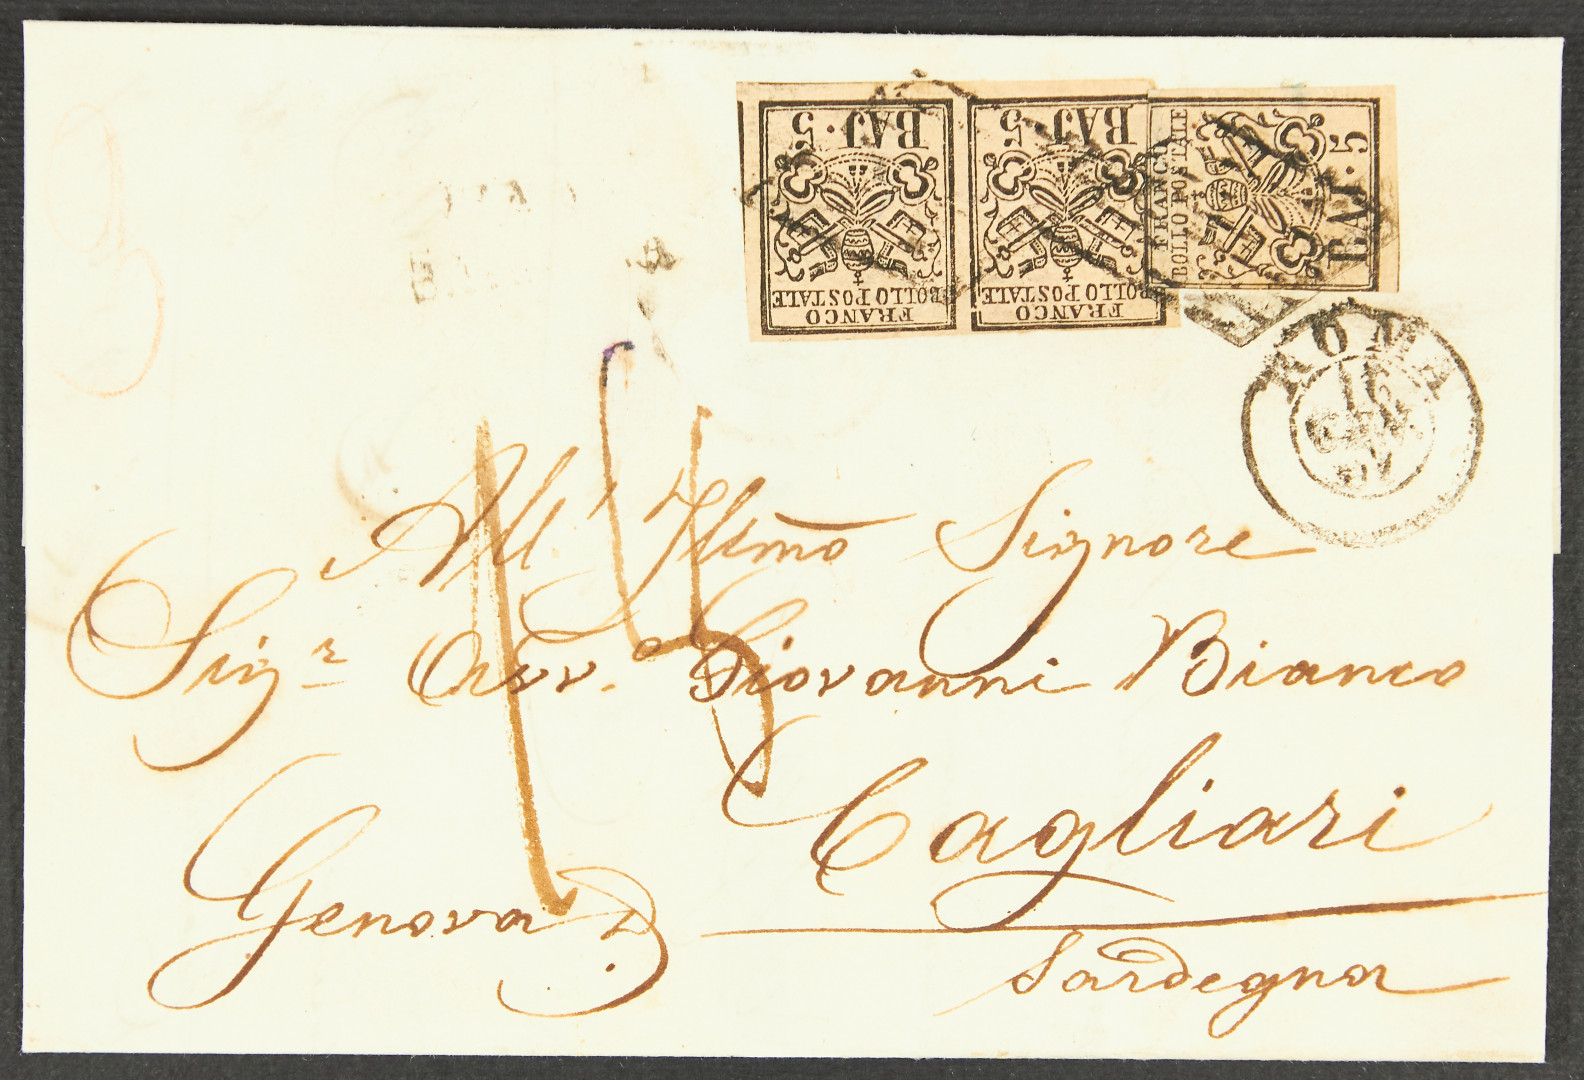 BAJ. 5
FRANCO
BOLLO POSTALE
BAJ. 5
FRANCO
BOLLO POSTALE
BAJ. 5
FRANCO
BOLLO POSTALE
ROMA
16
15
All' Illmo Signore
Sigr Avv.o Giovanni Bianco
Cagliari
Genova
Sardegna